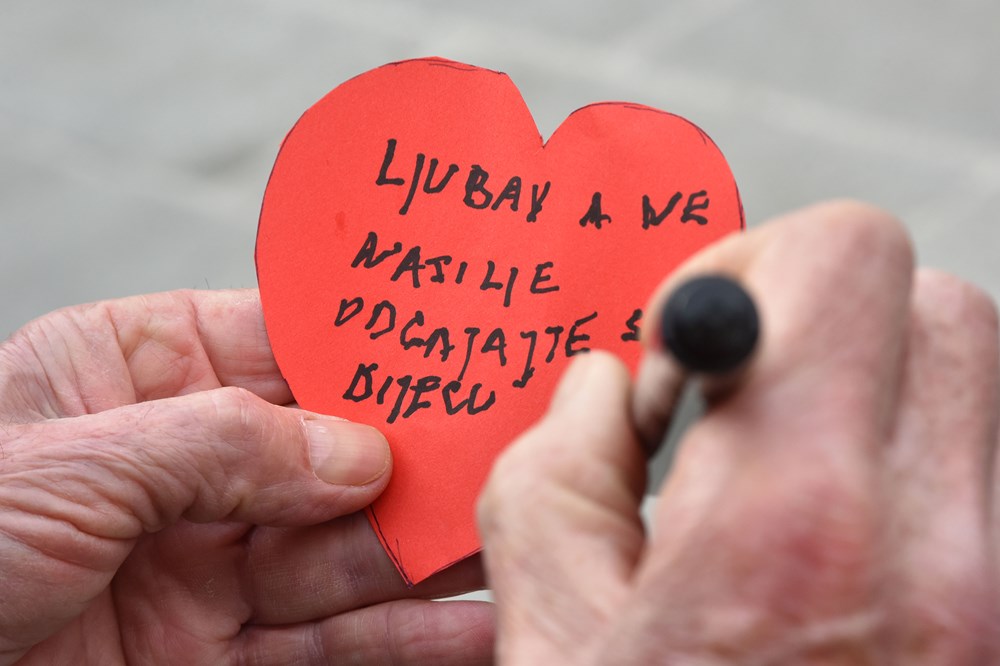 LJUBAV A NE
NASILJE
ODGAJAJTE S
DIJECU